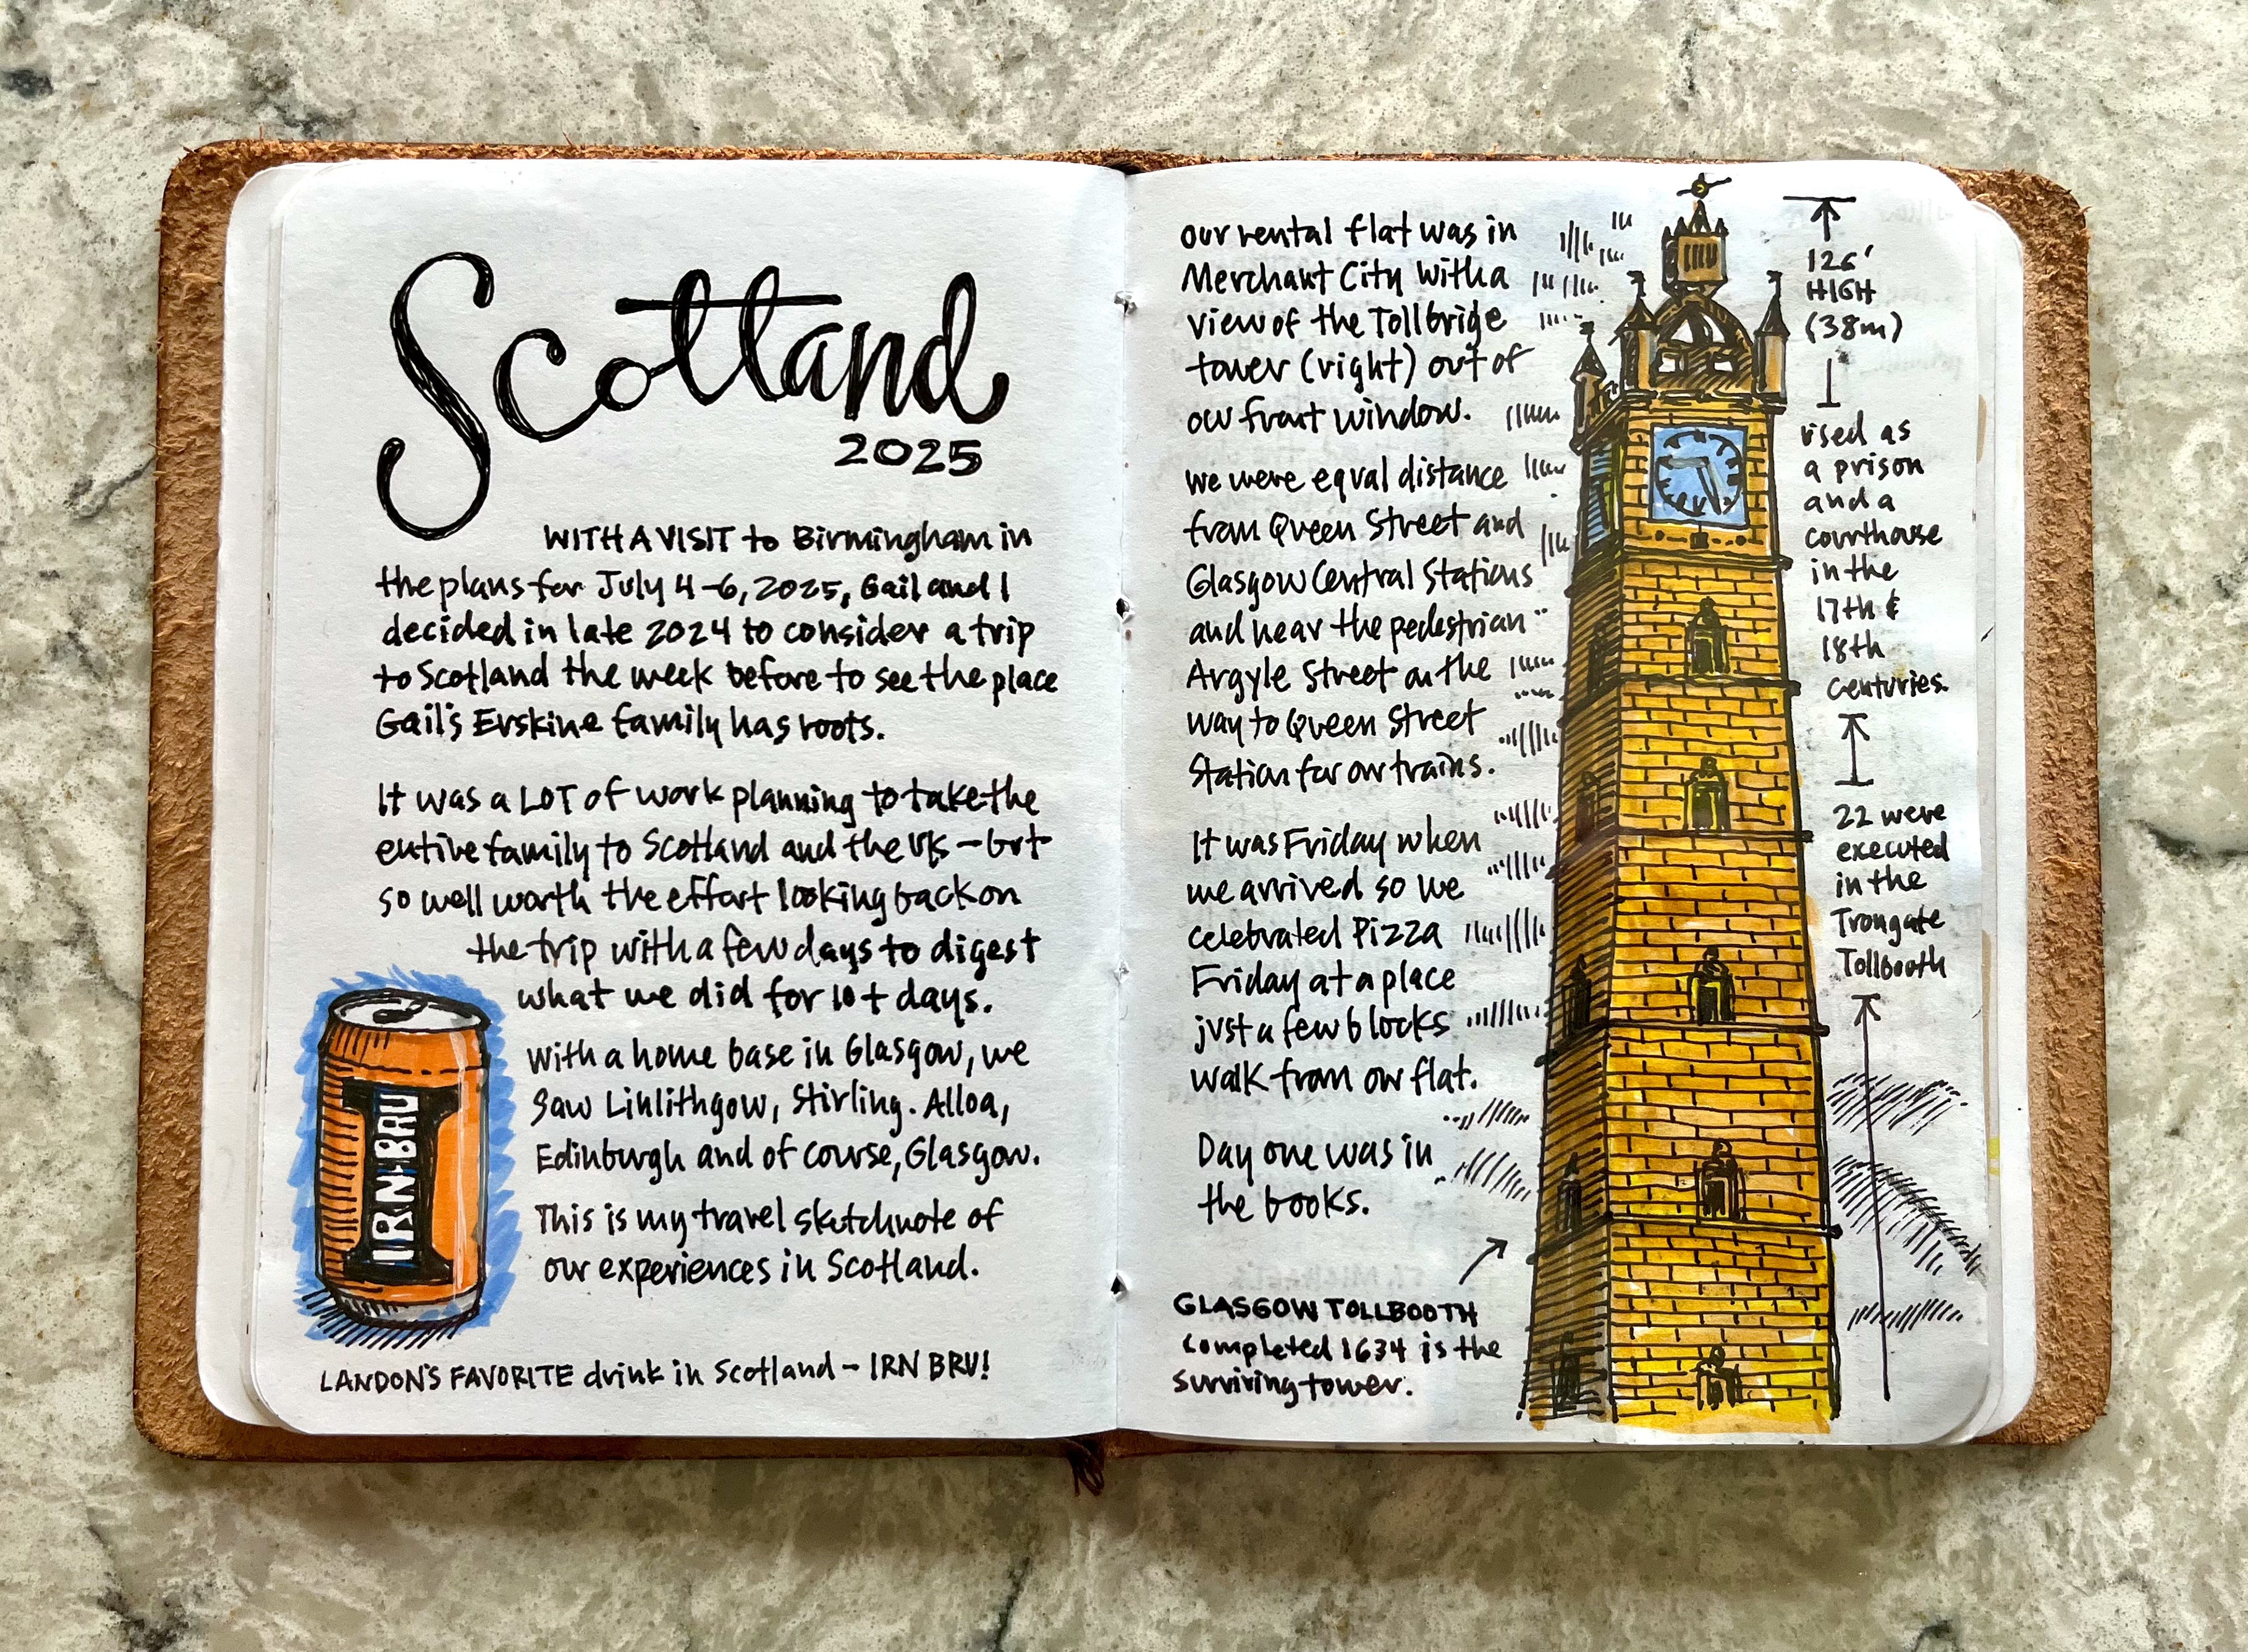 Scotland
2025
WITH A VISIT to Birmingham in
the plans for July 4-6, 2025, Gail and I
decided in late 2024 to consider a trip
to Scotland the week before to see the place
Gail's Erskine family has roots.
It was a LOT of work planning to take the
entire family to Scotland and the UK — but
so well worth the effort looking back on
the trip with a few days to digest
what we did for 10+ days.
With a home base in Glasgow, we
saw Linlithgow, Stirling. Alloa,
Edinburgh and of course, Glasgow.
This is my travel sketchnote of
our experiences in Scotland.
IRN-BRU
LANDON'S FAVORITE drink in Scotland — IRN BRU!
our rental flat was in
Merchant City with a
view of the Tollbridge
tower (right) out of
our front window.
we were equal distance
from Queen Street and
Glasgow Central Stations
and near the pedestrian
Argyle Street on the
way to Queen Street
Station for our trains.
It was Friday when
we arrived so we
celebrated Pizza
Friday at a place
just a few blocks
walk from our flat.
Day one was in
the books.
GLASGOW TOLLBOOTH
completed 1634 is the
surviving tower.
126'
HIGH
(38m)
used as
a prison
and a
courthouse
in the
17th &
18th
Centuries.
22 were
executed
in the
Trongate
Tollbooth